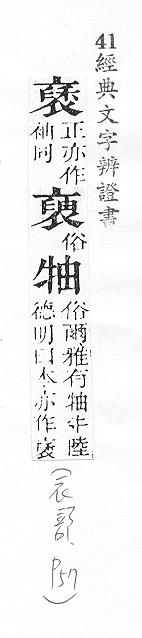 41 經典文字辨證書
褎
正亦作
袖同
俗
牰
俗爾雅有牰牛陸
德明曰本亦作褎
(衣部, P57)